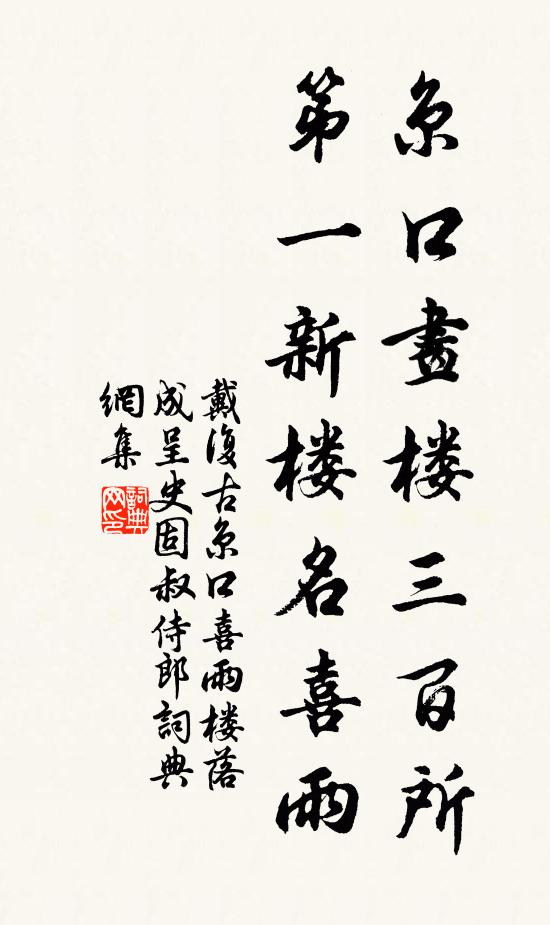 京口畫楼三百所
第一新楼名喜雨
戴復古京口喜雨楼落
成呈史固叔侍郎詞典
網集
詞典
网印